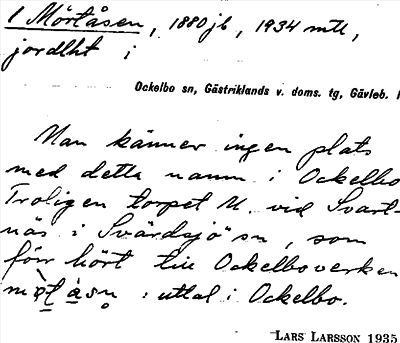 1 Mörtåsen, 1880 jb, 1934 mtl,
jordlht i
Ockelbo sn, Gästriklands v. doms. tg, Gävleb. l
Man känner ingen plats
med detta namn i Ockelbo
Troligen torpet M. vid Svart-
näs i Svärdsjö sn, som
förr hört till Ockelboverken
: uttal i Ockelbo.
LARS LARSSON 1935